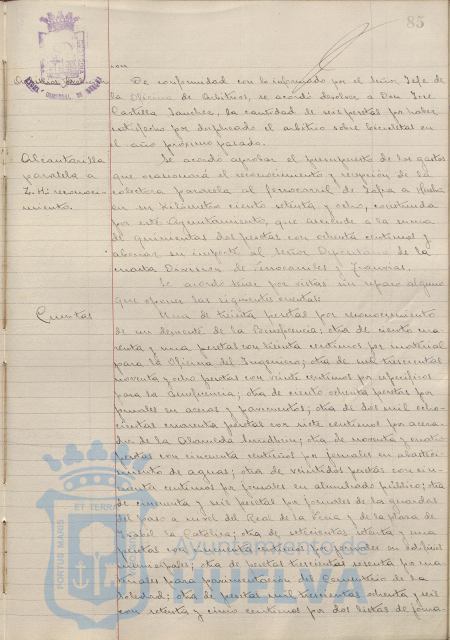 85
ron
De conformidad con lo informado por el Señor Jefe de
la Oficina de Arbitrios, se acordó devolver a Don José
Castilla Sanchez, la cantidad de seis pesetas por haber
satisfecho por duplicado el arbitrio sobre bicicletas en
el año próximo pasado.
Alcantarilla
paralela a
Z. H. reconoci-
miento.
Se acordó aprobar el presupuesto de los gastos
que ocasionará el reconocimiento y recepción de la
colectora paralela al ferrocarril de Zafra a Huelva
en su kilómetro ciento setenta y ocho, construida
por este Ayuntamiento, que asciende a la suma
de quinientas dos pesetas con ochenta centimos y
abonar su importe al Señor Depositario de la
cuarta Division de Ferrocarriles y Tranvias.
Se acordó tener por vistas sin reparo alguno
que oponer las siguientes cuentas:
Cuentas
Una de treinta pesetas por reconocimiento
de un demente de la Beneficencia; otra de ciento cua
renta y una pesetas con treinta centimos por material
para la Oficina del Ingeniero; otra de mil trescientas
noventa y ocho pesetas con veinte centimos por especificos
para la Beneficencia; otra de ciento ochenta pesetas por
jornales en aceras y pavimentos; otra de dos mil ocho-
cientas cuarenta pesetas con siete centimos por acera-
do de la Alameda Sundheim; otra de noventa y cuatro
pesetas con cincuenta centimos por jornales en abasteci-
miento de aguas; otra de veintidos pesetas con cin-
cuenta centimos por jornales en alumbrado público; otra
de cincuenta y seis pesetas por jornales de la guardesa
del paso a nivel del Real de la Feria y de la plaza de
Isabel la Católica; otra de setecientas setenta y una
pesetas con cincuenta centimos por jornales en edificios
municipales; otra de pesetas trescientas sesenta por ma
teriales para pavimentacion del Cementerio de la
Soledad; otra de pesetas mil trescientas ochenta y seis
con setenta y cinco centimos por dos listas de jorna-
PORTUS MARIS
ET TERRAE
Ayuntamiento de